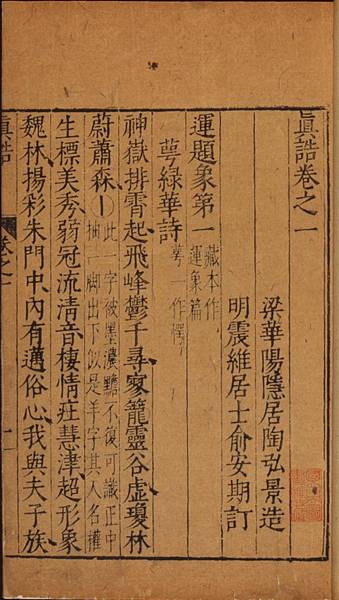 真誥卷之一
梁華陽隱居陶弘景造
明震維居士俞安期訂
運題象第一 藏本作運象篇
萼綠華詩 萼一作愕
神嶽排霄起飛峰鬱千尋寥籠靈谷虛瓊林
蔚蕭森〇此一字被墨濃黵不復可識正中抽一脚出下似是羊字其人名權
生標美秀弱冠流清音棲情莊慧津超形象
魏林揚彩朱門中內有邁俗心我與夫子族
真誥 卷之一 一